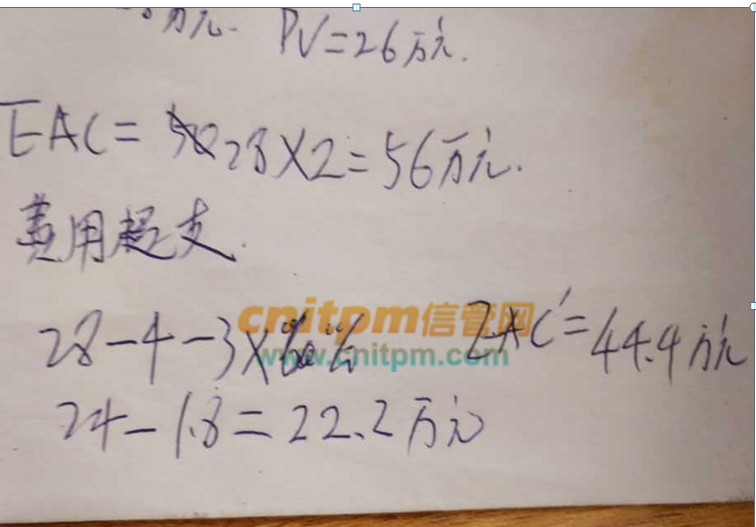 万元. PV=26万元.
EAC= 28×2=56万元.
费用超支.
28-4-3×60% EAC'=44.4万元
cnitpm信管网
www.cnitpm.com
24-1.8=22.2万元